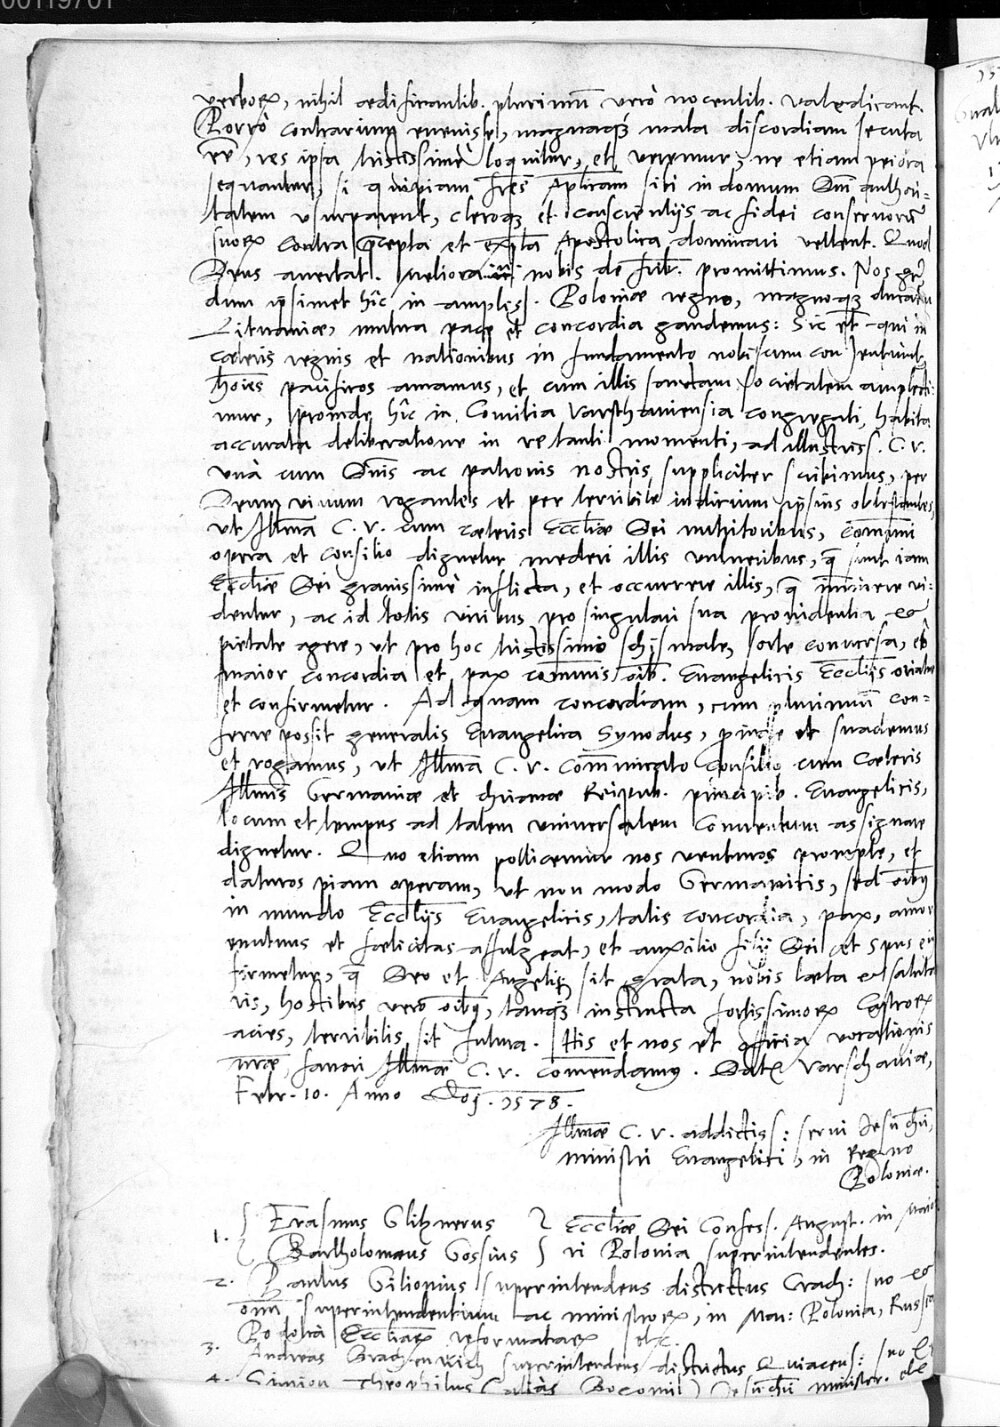 00119701
verborꝝ, nihil ædificantib. plurimũ verò nocentib. valedicant.
Porrò contrarium evenisse, magnaqȝ mala discordiam secuta
eē, res ipsa tristissimè loquitur, et veremur, ne etiam peiora
sequantur, si quispiam frēs Aplicam sibi in domum Dnī authori-
tatem usurparent, cleroqȝ et conscientijs ac fidei conservorū
suorꝝ contra præcepta et exēpla Apostolica dominari vellent. Quod
Deus avertat. Meliora nobis de promittimus. Nos
dum ipsimet hîc in ampliss. Poloniæ regno, magnoqȝ ducatu
Lituaniæ, mutua pace et concordia gaudemus: Sic et qui in
cæteris regnis et nationibus in fundamento nobiscum consentiunt,
hoīes pacificos amamus, et cum illis sanctam societatem amplecti-
mur, proinde hîc in Comitia Varschaviensia congregati, habita
accurata deliberatione in re tanti momenti, ad illustriss. C. V.
unà cum Dnīs ac patronis nostris suppliciter scribimus, per
Deum vivum rogantes et per terribile iudicium ipsius obtestantes,
ut Illmā C. V. cum cæteris Ecclīæ Dei nutritoribus, communi
opera et consilio dignetur mederi illis vulneribus, q̄ sunt iam
Ecclīæ Dei gravissimè inflicta, et occurrere illis, q̄ imminere vi-
dentur, ac id totis viribus, pro singulari sua providentia et
pietate agere, ut pro hoc tristissimo schismate, sorte conversa, eò
maior concordia et pax com̄unis oīb. Evangelicis Ecclijs oriatur
et confirmetur. Ad quam concordiam, cum plurimum con-
ferre possit generalis Evangelica Synodus, proinde et suademus
et rogamus, ut Illmā C. V. com̄unicato consilio cum cæteris
Illmīs Germaniæ et Reipub. principib. Evangelicis,
locum et tempus ad talem universalem Conventum assignare
dignetur. Quo etiam pollicemur nos venturos promptè, et
daturos piam operam, ut non modo Germanicis, sed oībꝯ
in mundo Ecclijs Evangelicis, talis concordia, pax, amor
mutuus et fœlicitas affulgeat, et auxilio filij Dei et Spūs eiꝯ
firmetur, q̄ Deo et Angelis sit grata, nobis læta et saluta
ris, hostibus verò oībꝯ, tanqȝ instructa fortissimorꝝ Castrorꝝ
acies, terribilis sit futura. His et nos et officia vocationis
nrāe favori Illmāe C. V. comendamꝯ. Datæ Varschaviæ,
Febr. 10. Anno Doj. 1578.
Illmāe C. V. addictiss: servi Jesu Chri,
ministri Evangelici, in Regno
Poloniæ.
1. Erasmus Glitznerus Ecclīæ Dei Confess. August. in Maiori
Bartholomæus Gossius Polonia superintendentes.
2. Paulus Gilionius Superintendens districtus Crach: suo et
oīum superintendentium ac ministrorꝝ, in Min: Polonia, Russia
Podolia Ecclīarꝝ reformatarꝝ etc.
3. Andreas superintendens districtus Quiaviens: suo et
4. Simion Theophilus Jesu Chri minister. etc